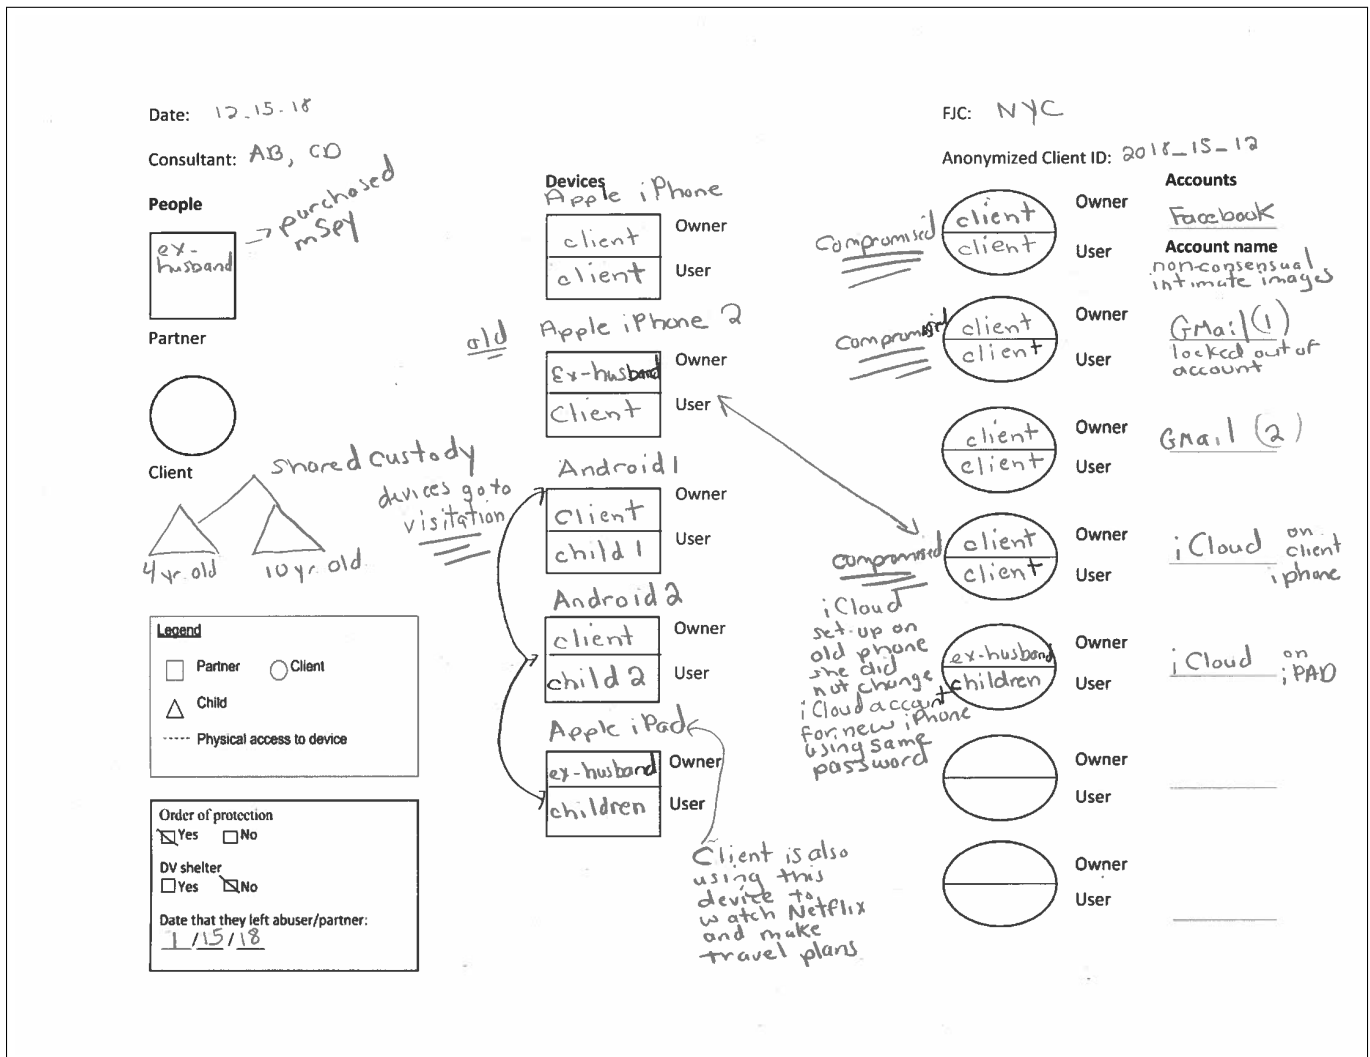 Date: 12.15.18
Consultant: AB, CD
People
ex-
husband
→ purchased
mSpy
Partner
Client
shared custody
4 yr. old
10 yr. old
devices go to
visitation
Legend
Partner
Client
Child
Physical access to device
Order of protection
Yes
No
DV shelter
Yes
No
Date that they left abuser/partner:
1/15/18
Devices
Apple iPhone
client
Owner
client
User
old
Apple iPhone 2
Ex-husband
Owner
Client
User
Android 1
Client
Owner
child 1
User
Android 2
client
Owner
child 2
User
Apple iPad
ex-husband
Owner
children
User
Client is also
using this
device to
watch Netflix
and make
travel plans
FJC: NYC
Anonymized Client ID: 2018_15_12
Accounts
compromised
client
Owner
client
User
Facebook
Account name
non-consensual
intimate images
compromised
client
Owner
client
User
GMail (1)
locked out of
account
client
Owner
client
User
GMail (2)
compromised
client
Owner
client
User
iCloud
on
client
iphone
iCloud
set-up on
old phone
she did
not change
iCloud account
for new iPhone
using same
password
ex-husband
Owner
children
User
iCloud
on
iPAD
Owner
User
Owner
User